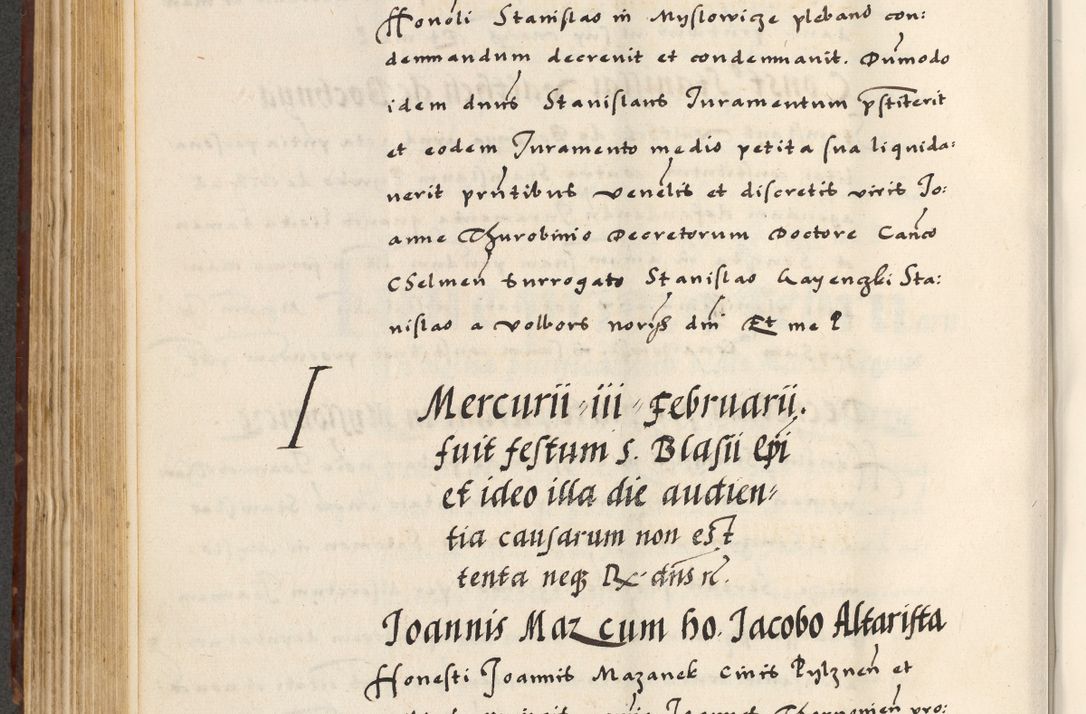 Honoli Stanislao in Myslowicze plebano con:
demnandum decrevit et condemnavit. Dumodo
idem dnus Stanislaus Iuramentum pstiterit
et eodem Iuramento medio petita sua liquida:
verit prntibus venelis et discretis viris Jo:
anne Thurobinio Decretorum Doctore Canco
Chelmen Surrogato Stanislao Gayenczki Sta:
nislao a Volbors norijs dm Et me
Mercurii iii Februarii.
fuit festum s. Blasii Epi
et ideo illa die audien-
tia causarum non est
tenta neq Rx dns
Joannis Maz cum ho. Jacobo Altarista
Honesti Joannis Mazanek Civis Pylznen et